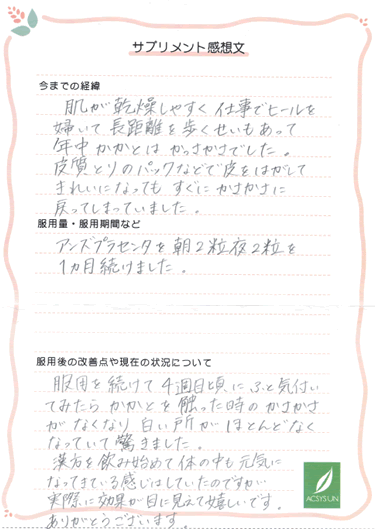 サプリメント感想文
今までの経緯
肌が乾燥しやすく仕事でヒールを
婦いて長距離を歩くせいもあって
年中かかとはかっさかさでした。
皮質とりのパックなどで皮をはがして
きれいになってもすぐにかさかさに
戻ってしまっていました。
服用量・服用期間など
アンズプラセンタを朝2粒夜2粒を
1ヵ月続けました。
服用後の改善点や現在の状況について
服用を続けて4週目頃にふと気付い
てみたらかかとを触った時のかさかさ
がなくなり白い所がほとんどなく
なっていて驚きました。
漢方を飲み始めて体の中も元気に
なってきている感じはしていたのですが
実際に効果が目に見えて嬉しいです。
ありがとうございます。
ACSYSUN